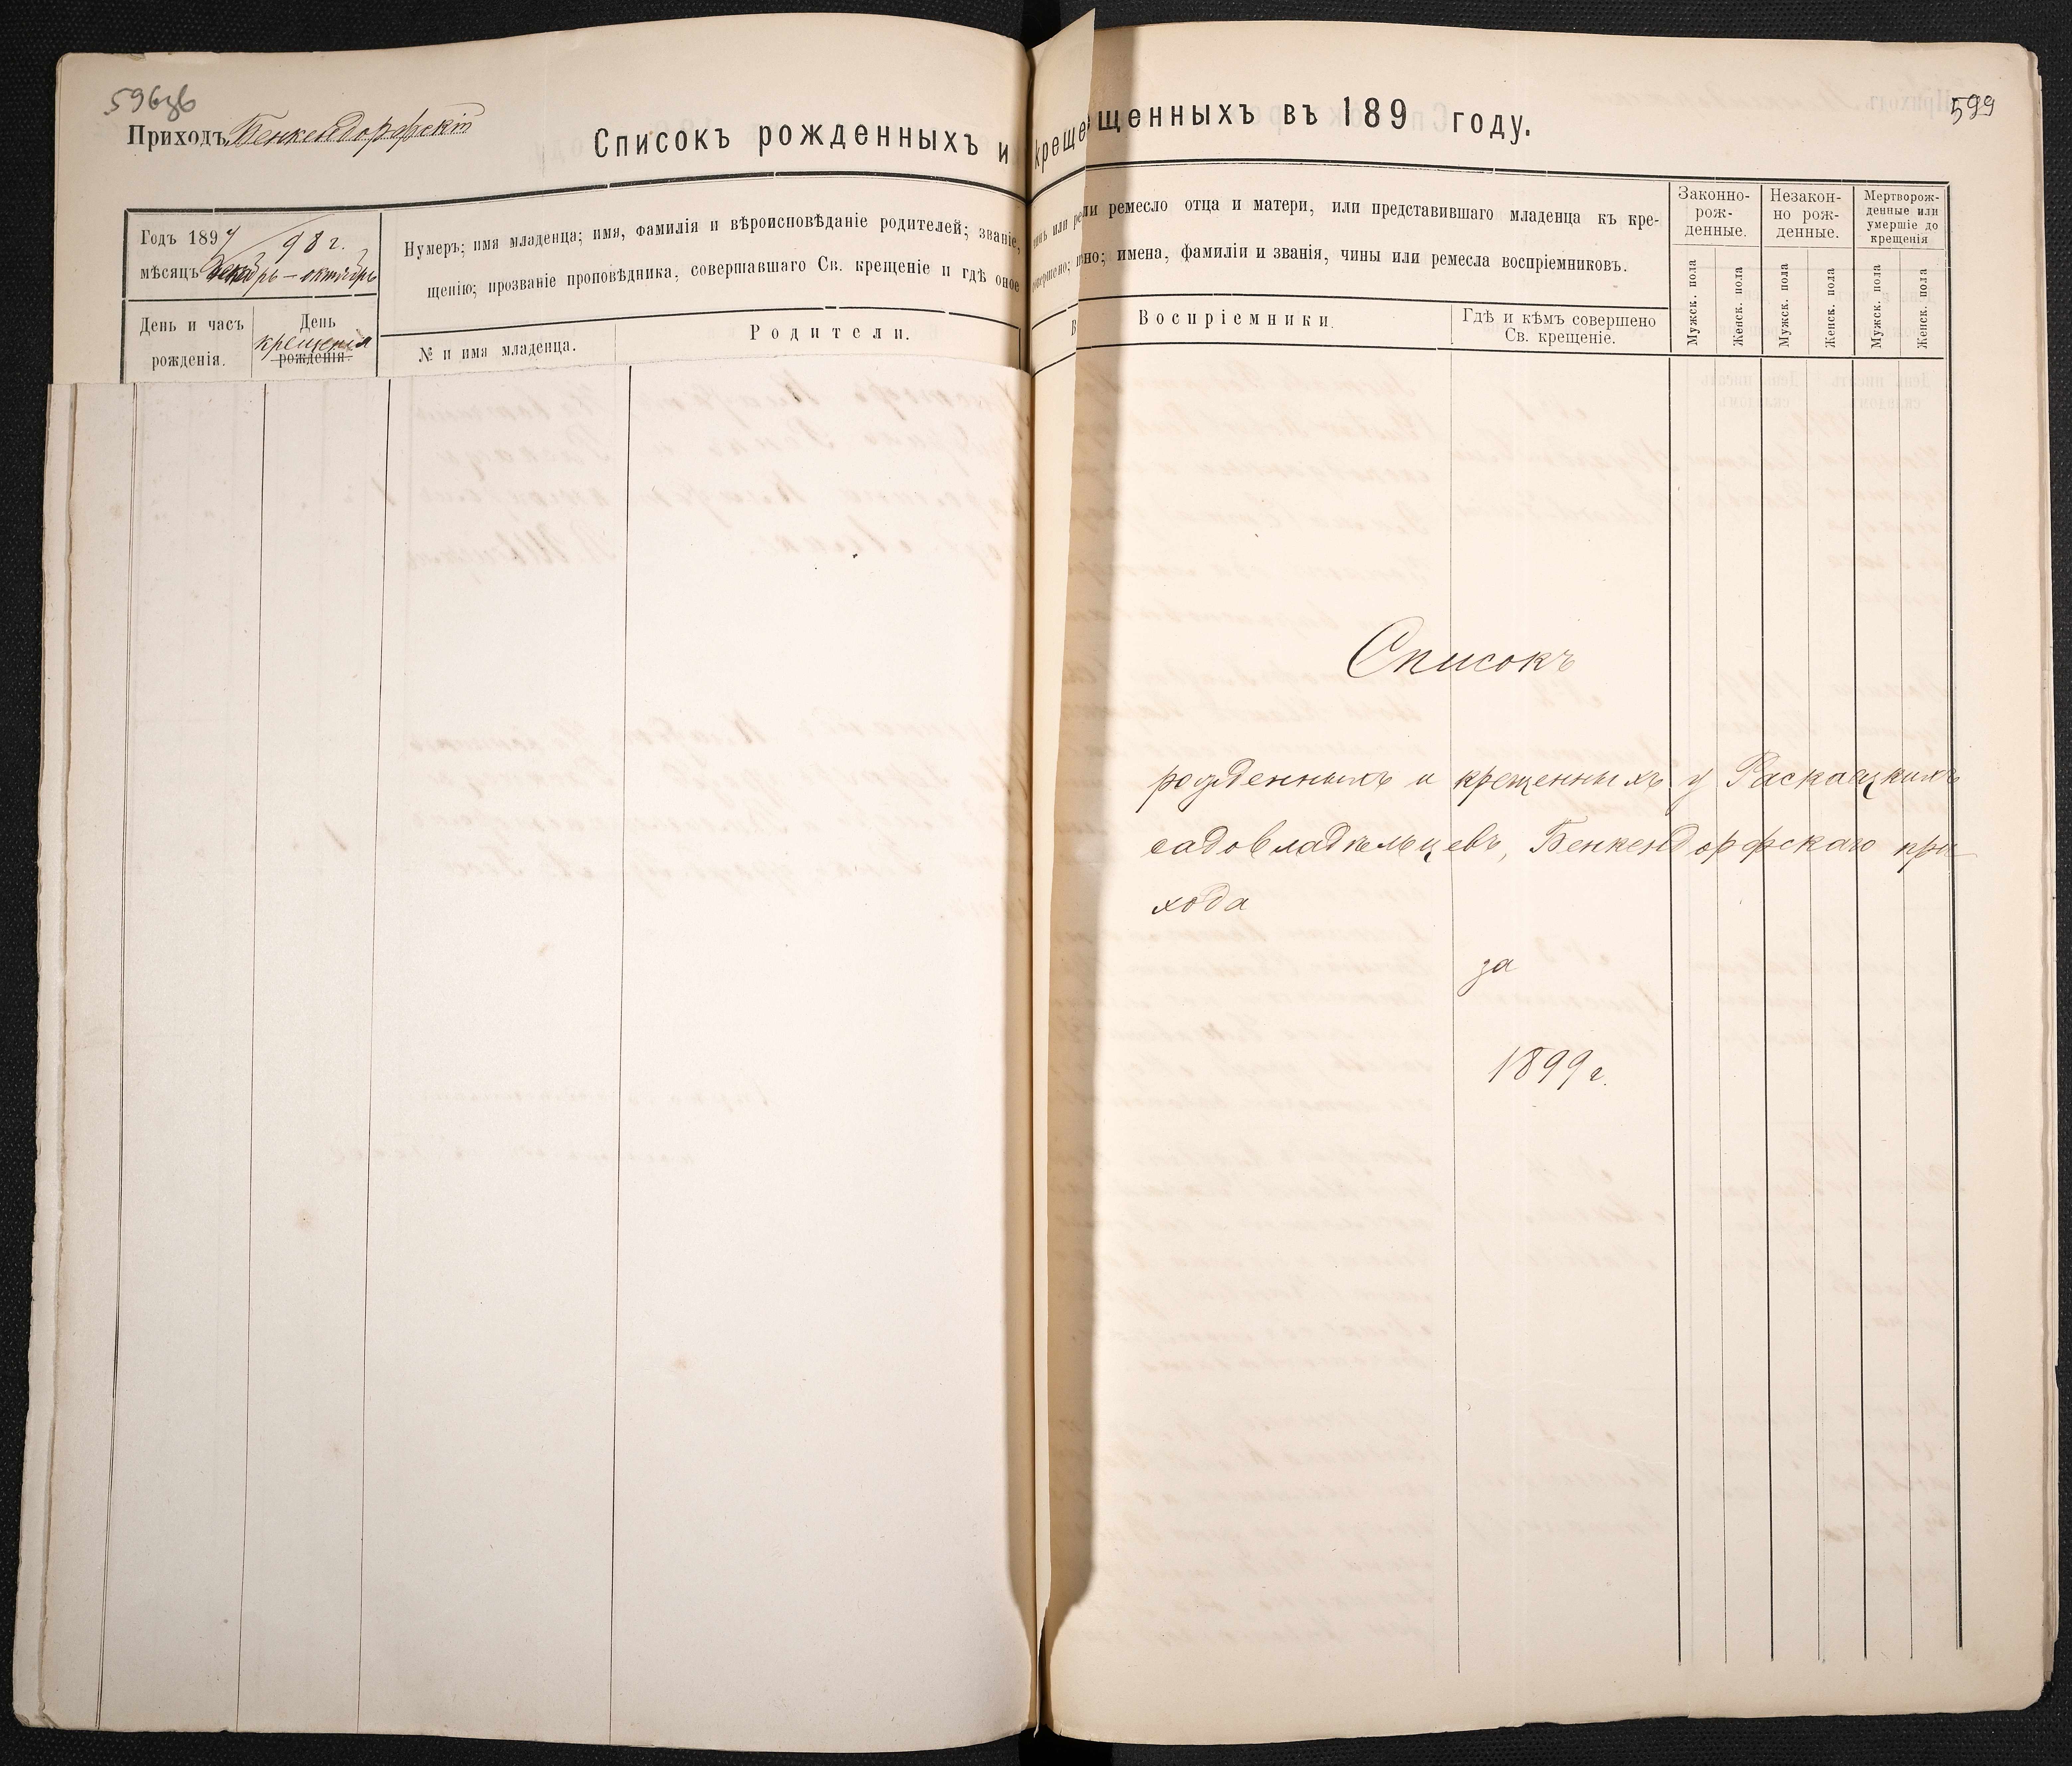 Приходъ Бенкендорфскій
Списокъ рожденныхъ и крещенныхъ въ 189 году.
599
Годъ 1897/98 г.
мѣсяцъ декабрь — октябрь
Нумеръ; имя младенца; имя, фамилія и вѣроисповѣданіе родителей; званіе,
щенію; прозваніе проповѣдника, совершавшаго Св. крещеніе и гдѣ оное
День и часъ
рожденія.
День
крещенія
рожденія.
№ и имя младенца.
Родители.
или ремесло отца и матери, или представившаго младенца къ кре-
имена, фамиліи и званія, чины или ремесла воспріемниковъ.
Воспріемники.
Гдѣ и кѣмъ совершено
Св. крещеніе.
Законно-
рож-
денные.
Незакон-
но рож-
денные.
Мертворож-
денные или
умершіе до
крещенія
Мужск. пола
Женск. пола
Мужск. пола
Женск. пола
Мужск. пола
Женск. пола
Списокъ
рожденныхъ и крещенныхъ у Раскаецкихъ
садовладѣльцевъ, Бенкендорфскаго при-
хода
за
1899 г.